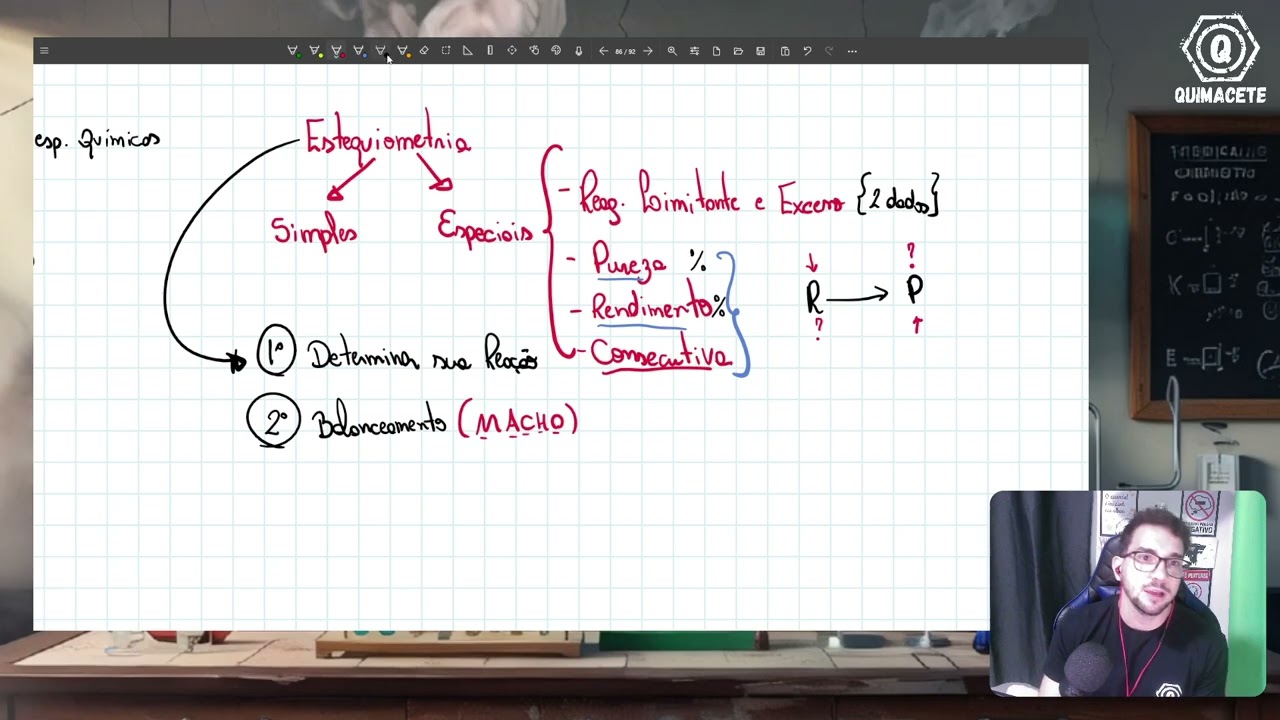 86 / 92
QUIMACETE
esp. Químicos
Estequiometria
Simples
Especiais
- Reag. Limitante e Excesso {2 dados}
- Pureza %
- Rendimento %
- Consecutiva
?
R → P
?
1º Determinar sua Reação
2º Balanceamento (MACHO)